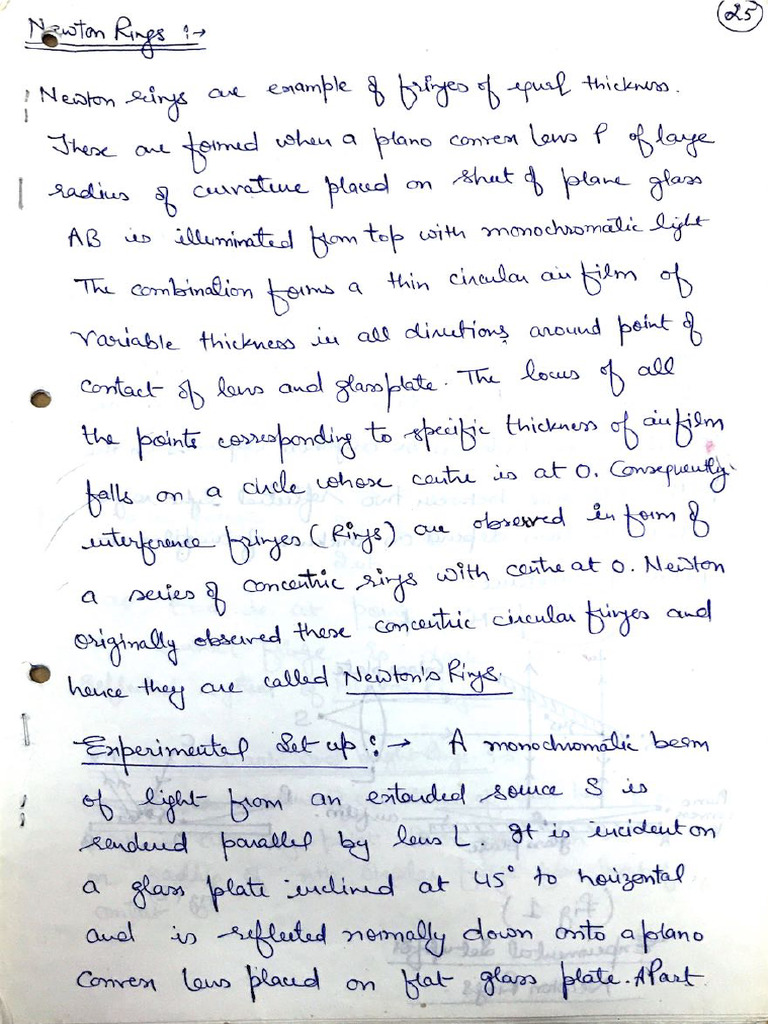 25
Newton Rings :→
Newton rings are example of fringes of equal thickness.
These are formed when a plano convex lens P of large
radius of curvature placed on sheet of plane glass
AB is illuminated from top with monochromatic light
The combination forms a thin circular air film of
variable thickness in all directions around point of
contact of lens and glass plate. The locus of all
the points corresponding to specific thickness of air film
falls on a circle whose centre is at O. Consequently
interference fringes (Rings) are observed in form of
a series of concentric rings with centre at O. Newton
originally observed these concentric circular fringes and
hence they are called Newton's Rings.
Experimental Set up :→ A monochromatic beam
of light from an extended source S is
rendered parallel by lens L. It is incident on
a glass plate inclined at 45° to horizontal
and is reflected normally down onto a plano
convex lens placed on flat glass plate. A Part